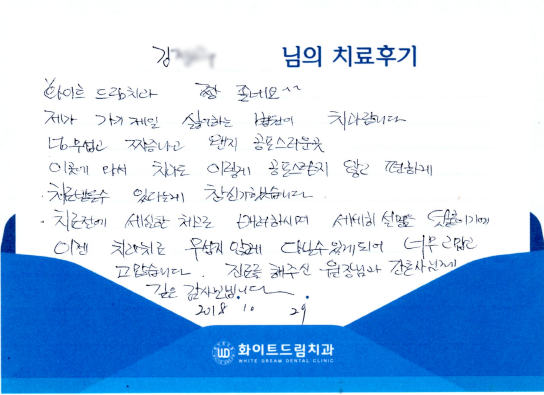 김 님의 치료후기
화이트 드림치과 짱 좋네요^^
제가 가기 제일 싫어하는 병원이 치과랍니다
너무 무섭고 짜증나고 왠지 공포스러운곳
이곳에 와서 치과도 이렇게 공포스런지 않고 편하게
치료받을수 있다는게 참 신기했습니다.
치료전에 세심한 배려하시며 세세히 설명도 덧붙이기에
이젠 치과치료 무섭지 않게 다닐수 있게되어 너무 고맙고
고맙습니다. 진료를 해주신 원장님과 간호사님께
깊은 감사드립니다
2018 10 29
화이트드림치과
WHITE DREAM DENTAL CLINIC